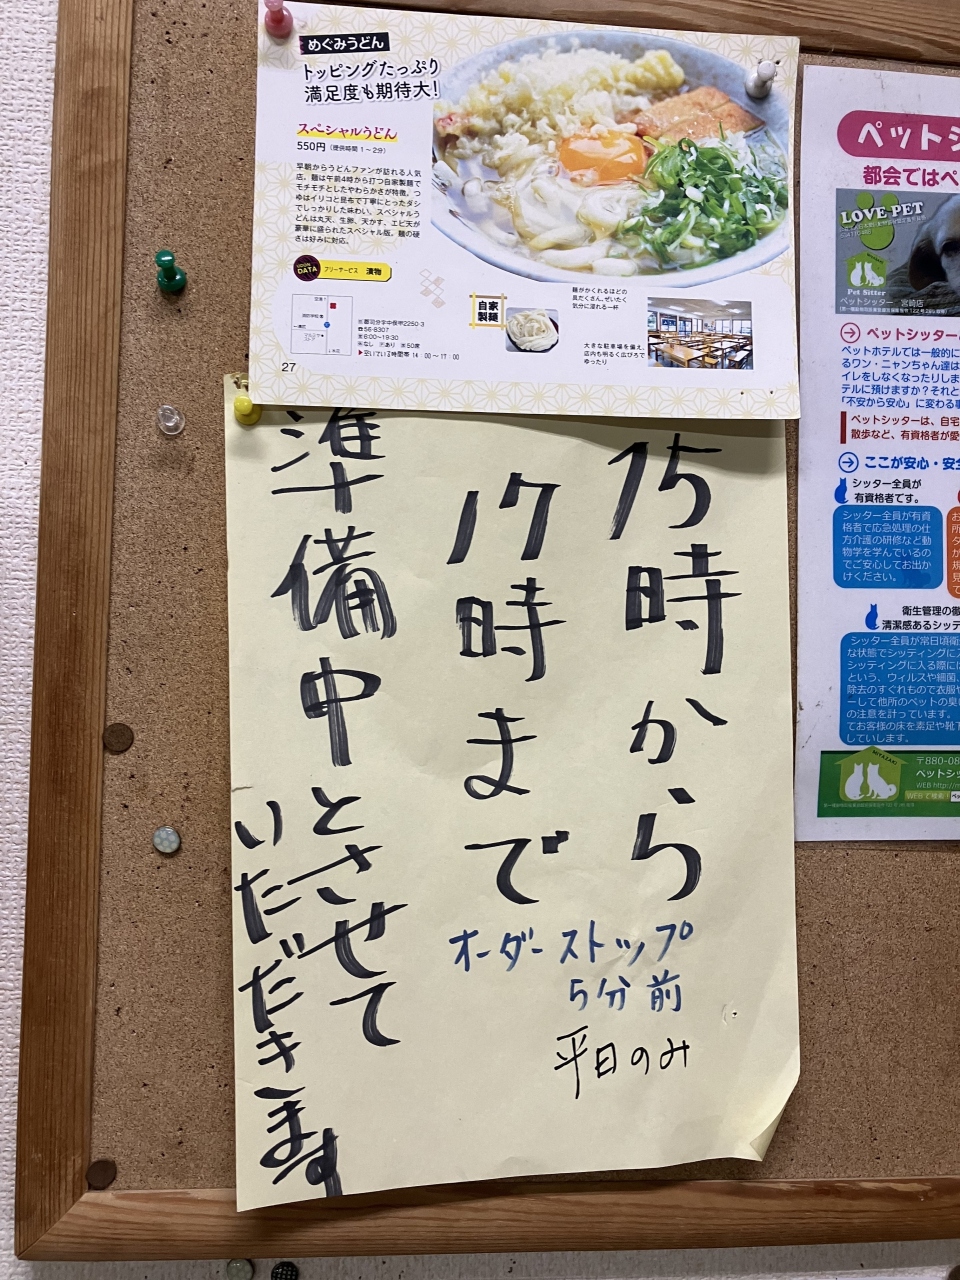 めぐみうどん
トッピングたっぷり
満足度も期待大!
スペシャルうどん
550円(提供時間1~2分)
早朝からうどんファンが訪れる人気
店。麺は午前4時から打つ自家製麺で
モチモチとしたやわらかさが特徴。つ
ゆはイリコと昆布で丁寧にとったダシ
でしっかりした味わい。スペシャルう
どんは丸天、生卵、天かす、エビ天が
豪華に盛られたスペシャル版。麺の硬
さは好みに対応。
UDON DATA
フリーサービス 漬物
56-8307
6:00~19:30
なし あり 50席
▶空いている時間帯 14:00~17:00
27
自家
製麺
麺がかくれるほどの
具だくさん。ぜいたく
気分に浸れる一杯
大きな駐車場を備え、
店内も明るく広びろで
ゆったり
15時から
17時まで
準備中とさせて
いただきます
オーダーストップ
5分前
平日のみ
ペットシ
都会ではペ
LOVE PET
Pet Sitter
ペットシッター 宮崎店
ペットシッター
ペットホテルでは一般的に
るワン・ニャンちゃん達は
イレをしなくなったりしま
テルに預けますか?それと
「不安から安心」に変わる事
ペットシッターは、自宅
散歩など、有資格者が愛
ここが安心・安全
シッター全員が
有資格者です。
シッター全員が有資
格者で応急処理の仕
方介護の研修など動
物学を学んでいるの
でご安心してお出か
けください。
衛生管理の徹
清潔感あるシッテ
シッター全員が常日頃衛
な状態でシッティングに
シッティングに入る際には
という、ウィルスや細菌、
除去のすぐれもので衣服や
ーして他所のペットの臭い
の注意を計っています。
てお客様の床を素足や靴下
していします。
MIYAZAKI
〒880-08
ペットシッ
WEB http://m
WEBで検索!